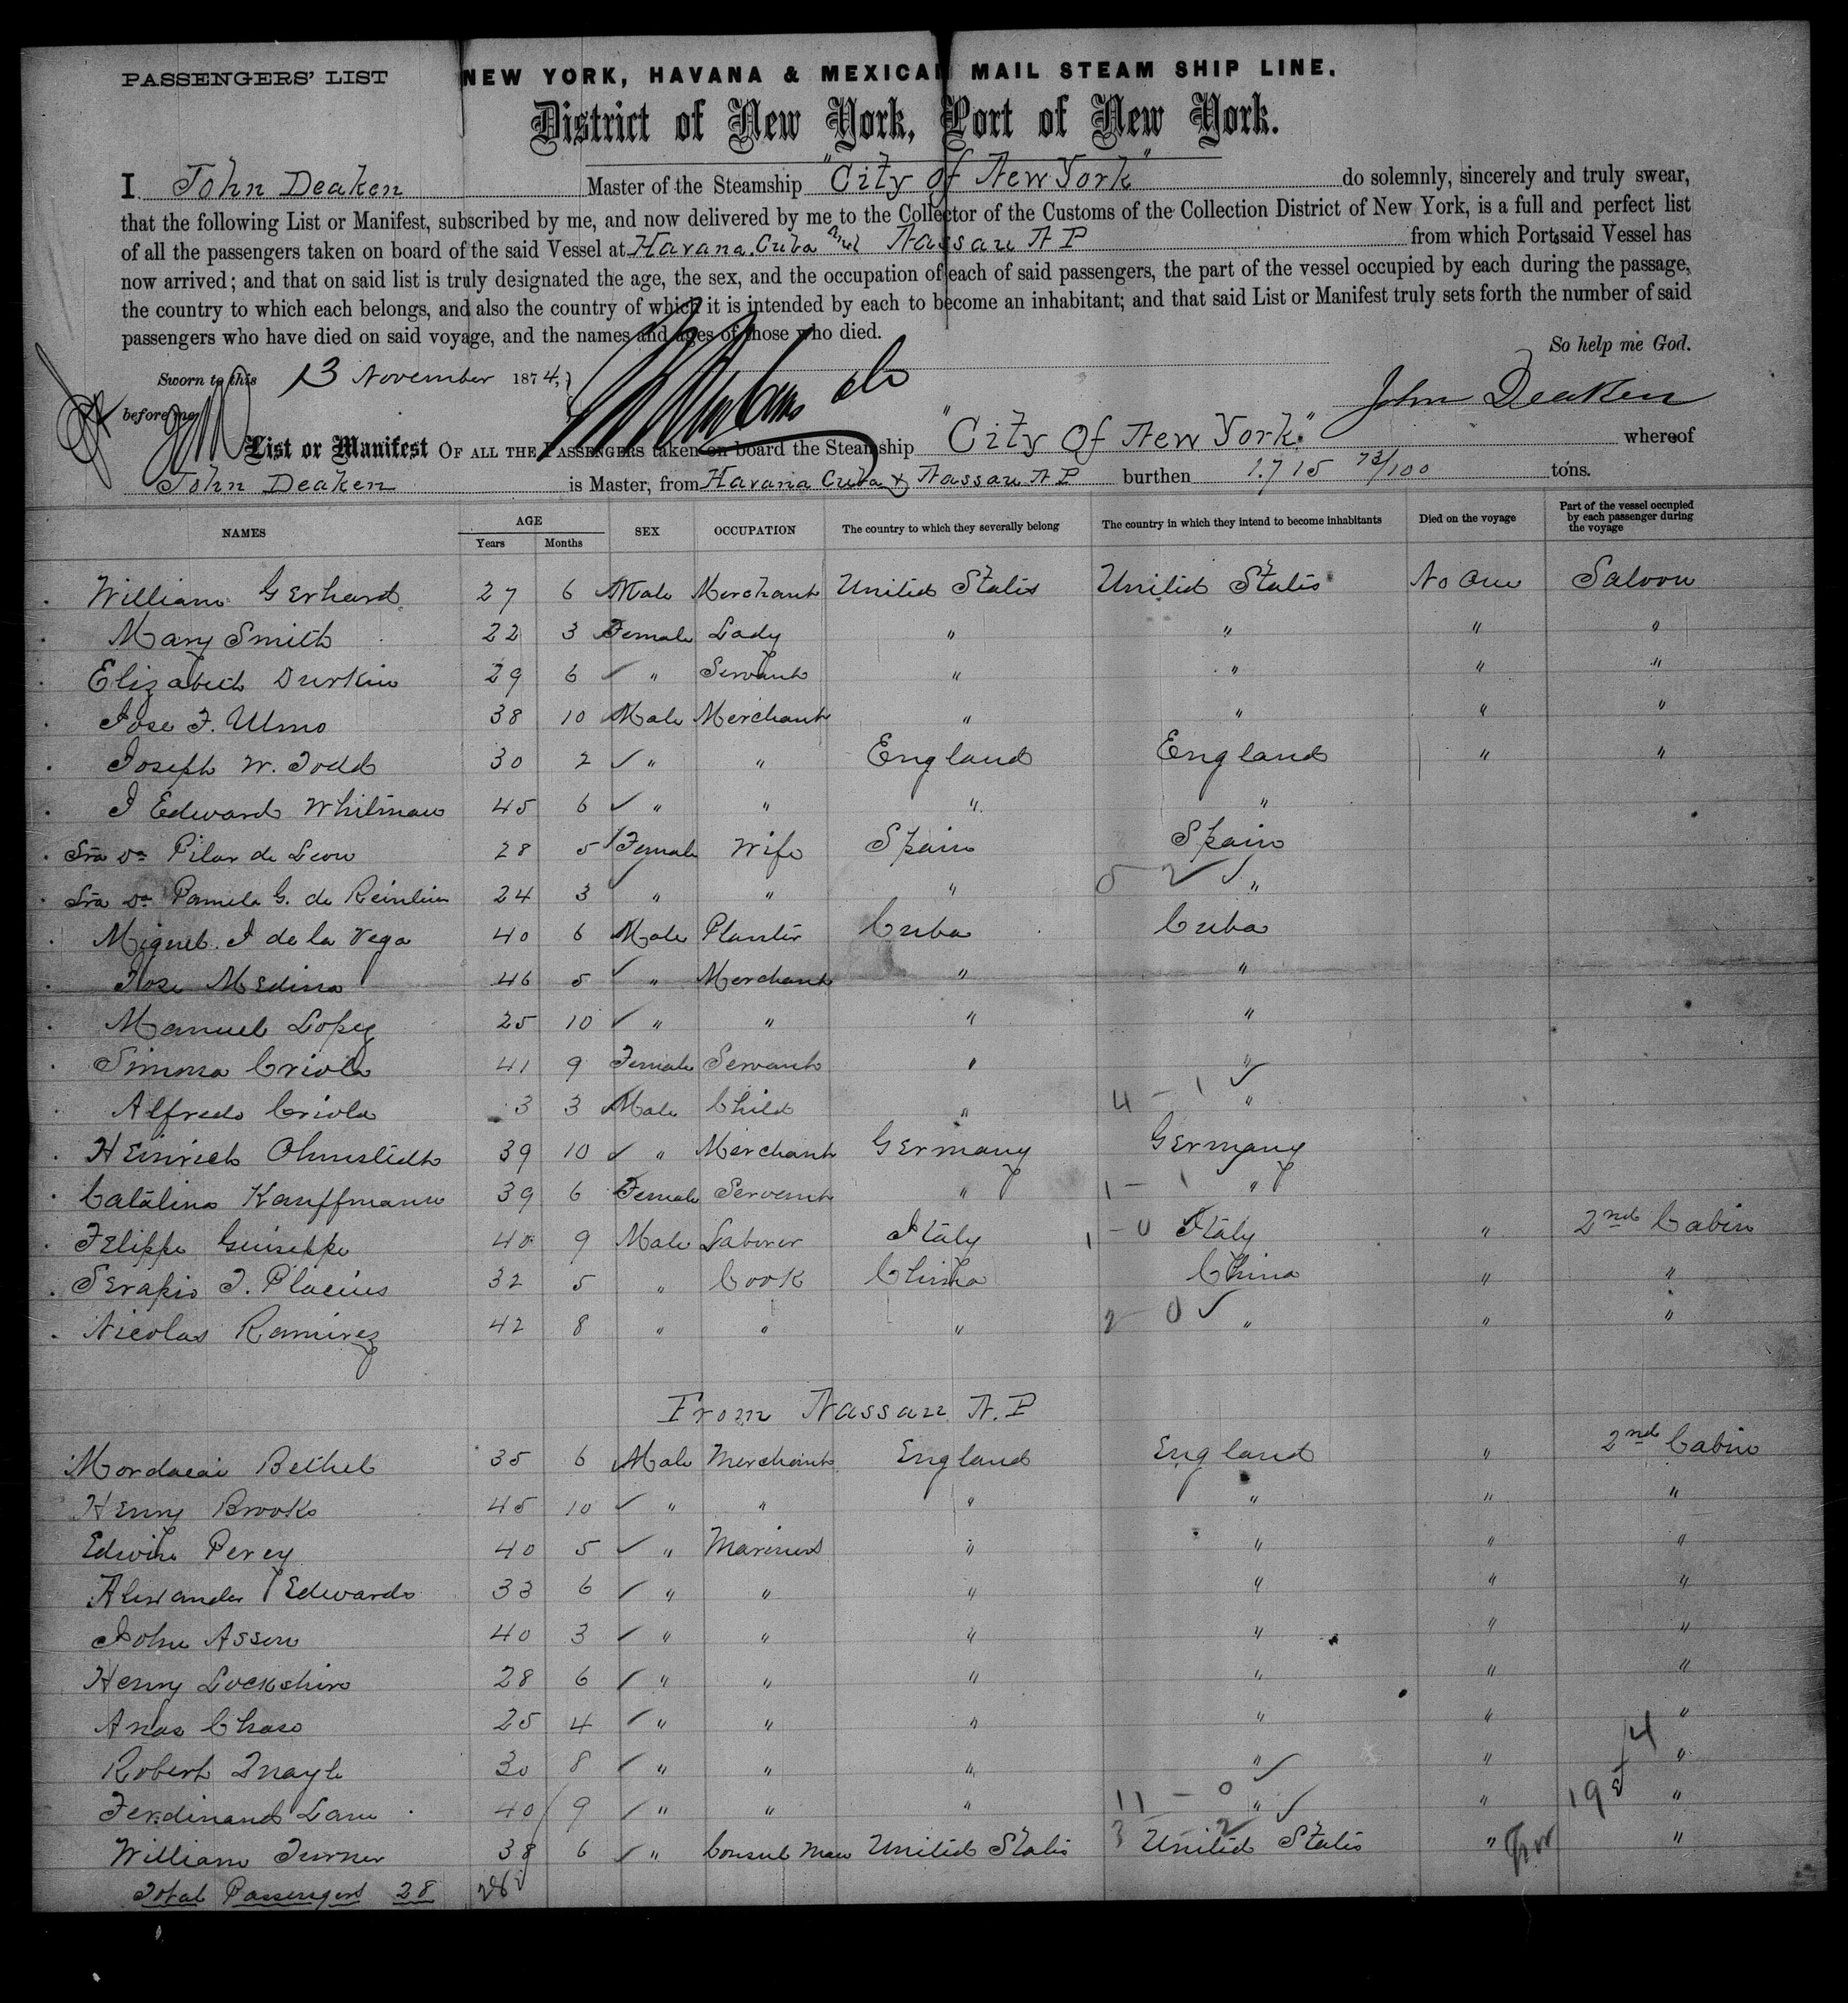 PASSENGERS' LIST NEW YORK, HAVANA & MEXICAN MAIL STEAM SHIP LINE.
District of New York, Port of New York.
I John Deaken Master of the Steamship "City of New York" do solemnly, sincerely and truly swear,
that the following List or Manifest, subscribed by me, and now delivered by me to the Collector of the Customs of the Collection District of New York, is a full and perfect list
of all the passengers taken on board of the said Vessel at Havana. Cuba and Nassau N P from which Ports said Vessel has
now arrived; and that on said list is truly designated the age, the sex, and the occupation of each of said passengers, the part of the vessel occupied by each during the passage,
the country to which each belongs, and also the country of which it is intended by each to become an inhabitant; and that said List or Manifest truly sets forth the number of said
passengers who have died on said voyage, and the names and ages of those who died.
So help me God.
Sworn to this 13 November 1874,
before me John Deaken
List or Manifest OF ALL THE PASSENGERS taken on board the Steamship "City Of New York." whereof
John Deaken is Master, from Havana Cuba & Nassau N P burthen 1.715 73/100 tons.
NAMES AGE Years Months SEX OCCUPATION The country to which they severally belong The country in which they intend to become inhabitants Died on the voyage Part of the vessel occupied by each passenger during the voyage
William Gerhard 27 6 Male Merchant United States United States No One Saloon
Mary Smith 22 3 Female Lady " " " "
Elizabeth Durkin 29 6 " Servant " " " "
Jose F. Ulmo 38 10 Male Merchant " " " "
Joseph W. Todd 30 2 " " England England " "
J Edward Whitman 45 6 " " " "
Sra Da Pilar de Leon 28 5 Female Wife Spain Spain
Sra Da Pamela G. de 24 3 " " " 5 2 "
Miguel J de la Vega 40 6 Male Planter Cuba Cuba
Jose Medina 46 5 " Merchant " "
Manuel Lopez 25 10 " " " "
Simona Criola 41 9 Female Servant " "
Alfredo Criolo 3 3 Male Child " 4 - 1 "
Heinrich Ohmstedt 39 10 " Merchant Germany Germany
Catalina Kauffmann 39 6 Female Servant " 1 - 1 "
Felippe Guiseppe 40 9 Male Laborer Italy 1 - 0 Italy " 2nd Cabin
Serapio J. Placius 32 5 " Cook China China " "
Nicolas Ramirez 42 8 " " " 2 0 " " "
From Nassau N. P
Mordacai Bethel 35 6 Male Merchant England England " 2nd Cabin
Henry Brooks 45 10 " " " " " "
Edwin Percy 40 5 " Mariners " " " "
Alexander Edwards 33 6 " " " " " "
John Assen 40 3 " " " " " "
Henry 28 6 " " " " " "
Chase 25 4 " " " " " "
Robert 30 8 " " " " " "
Ferdinand Lane 40 9 " " " 11 - 0 " " "
William Turner 38 6 " Consul Man United States 3 2 United States " "
Total Passengers 28 28